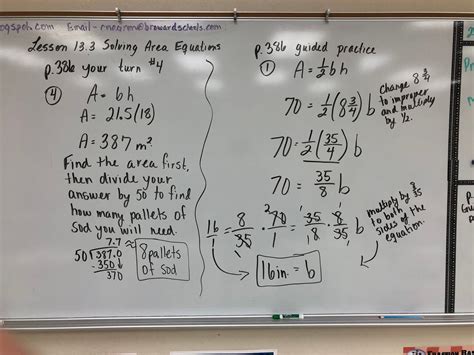 ogspot.com Email - @browardschools.com
Lesson 13.3 Solving Area Equations
p. 386 your turn #4
④ A = bh
A = 21.5(18)
A = 387 m²
Find the area first,
then divide your
answer by 50 to find
how many pallets of
sod you will need.
7.7 ≈ 8 pallets of sod
50)387.0
-350↓
370
p. 386 guided practice
① A = ½bh
70 = ½(8¾)b
Change 8¾
to improper
and multiply
by ½.
70 = ½(35/4)b
70 = 35/8 b
16/1 = 8/35 · 70/1 = 35/8 · 8/35 b
multiply by 8/35
to both
sides of the
equation.
16in. = b